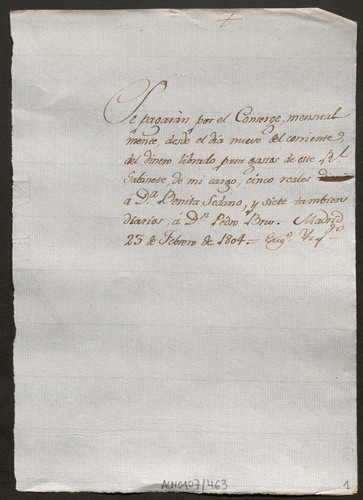 Se pagarán por el Conserge, mensual
mente, desde el dia nueve del corriente,
del dinero librado para gastos de este Rl.
Gabinete, de mi cargo, cinco reales
a Da. Benita Sedano, y siete tambien
diarios a Dn. Pedro Bru. Madrid
23 de Febrero de 1804.
ACN0107/463
1